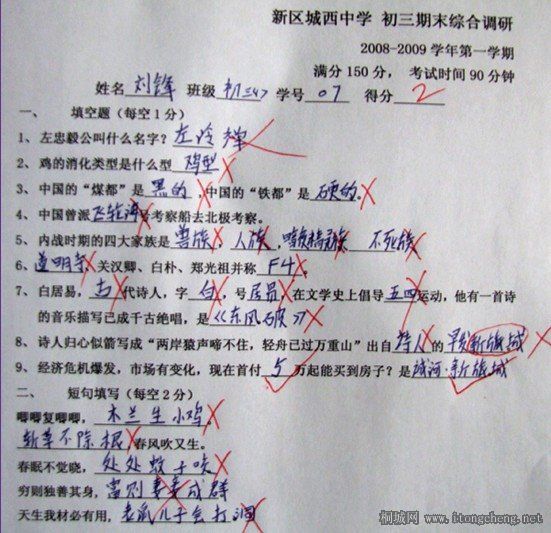 新区城西中学 初三期末综合调研
2008-2009学年第一学期
满分150分， 考试时间90分钟
姓名 刘锋 班级 初三47 学号 07 得分 2
一、 填空题（每空1分）
1、左忠毅公叫什么名字？左冷禅
2、鸡的消化类型是什么型 鸡型
3、中国的“煤都”是 黑的 ,中国的“铁都”是 硬的。
4、中国曾派飞轮海号考察船去北极考察。
5、内战时期的四大家族是 兽族，人族， 暗夜精灵族 不死族
6、道明寺、关汉卿、白朴、郑光祖并称 F4。
7、白居易，古代诗人，字 白，号居易，在文学史上倡导 五四运动，他有一首诗
的音乐描写已成千古绝唱，是《东风破》
8、诗人归心似箭写成“两岸猿声啼不住，轻舟已过万重山”出自 诗人的 早发新旅城
9、经济危机爆发，市场有变化，现在首付 5 万起能买到房子？是 新旅城
二、 短句填写（每空2分）
唧唧复唧唧， 木兰生小鸡。
斩草不除根，春风吹又生。
春眠不觉晓， 处处蚊子咬
穷则独善其身，富则妻妾成群
天生我材必有用，老鼠儿子会打洞
桐城网 www.itongcheng.net